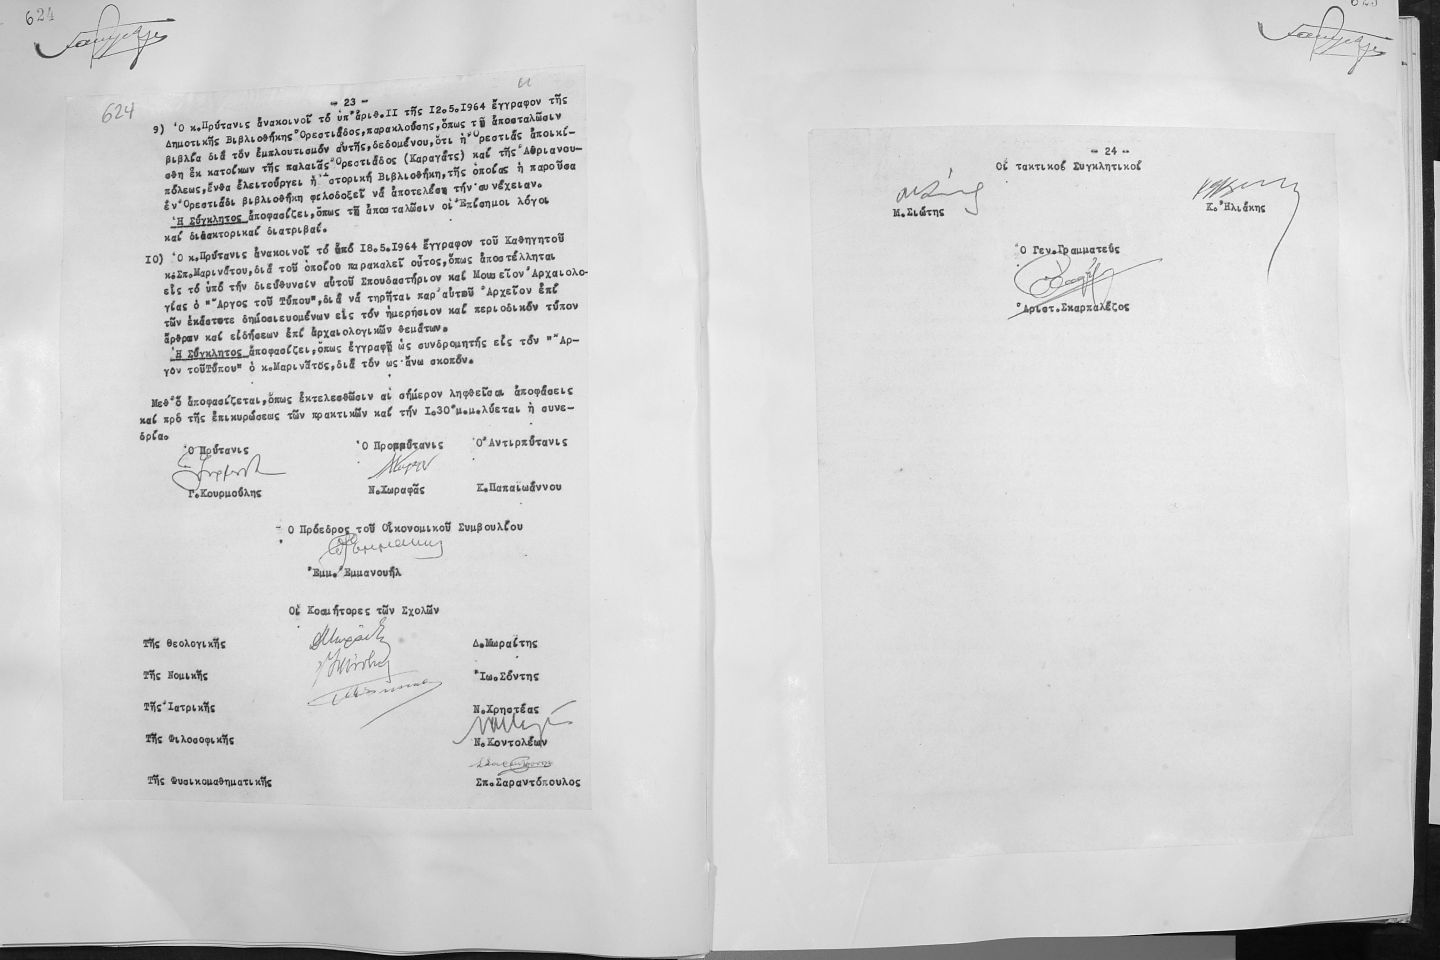 624
624
- 23 -
9) Ὁ κ.Πρύτανις ἀνακοινοῖ τό ὑπ'ἀριθ.II τῆς I2.5.I964 ἔγγραφον τῆς
Δημοτικῆς Βιβλιοθήκης Ὀρεστιάδος,παρακλούσης,ὅπως τῇ ἀποσταλῶσιν
βιβλία διά τόν ἐμπλουτισμόν αὐτῆς,δεδομένου,ὅτι ἡ Ὀρεστιάς ἀποικί-
σθη ἐκ κατοίκων τῆς παλαιᾶς Ὀρεστιάδος (Καραγάτς) καί τῆς Ἀδριανου-
πόλεως,ἔνθα ἐλειτούργει ἡ Ἱστορική Βιβλιοθήκη,τῆς ὁποίας ἡ παροῦσα
ἐν Ὀρεστιάδι βιβλιοθήκη φιλοδοξεῖ νά ἀποτελέσῃ τήν συνέχειαν.
Ἡ Σύγκλητος ἀποφασίζει,ὅπως τῇ ἀποσταλῶσιν οἱ Ἐπίσημοι λόγοι
καί διδακτορικαί διατριβαί.
I0) Ὁ κ.Πρύτανις ἀνακοινοῖ τό ἀπό I8.5.I964 ἔγγραφον τοῦ Καθηγητοῦ
κ.Σπ.Μαρινάτου,διά τοῦ ὁποίου παρακαλεῖ οὗτος,ὅπως ἀποστέλληται
εἰς τό ὑπό τήν διεύθυνσίν αὐτοῦ Σπουδαστήριον καί Μουσεῖον Ἀρχαιολο-
γίας ὁ "Ἄργος τοῦ Τύπου",διά νά τηρῆται παρ'αὐτοῦ Ἀρχεῖον ἐπί
τῶν ἑκάστοτε δημοσιευομένων εἰς τόν ἡμερήσιον καί περιοδικόν τύπον
ἄρθρων καί εἰδήσεων ἐπί ἀρχαιολογικῶν θεμάτων.
Ἡ Σύγκλητος ἀποφασίζει,ὅπως ἐγγραφῇ ὡς συνδρομητής εἰς τόν "Ἄρ-
γον τοῦΤύπου" ὁ κ.Μαρινᾶτος,διά τόν ὡς ἄνω σκοπόν.
Μεθ'ὅ ἀποφασίζεται,ὅπως ἐκτελεσθῶσιν αἱ σήμερον ληφθεῖσαι ἀποφάσεις
καί πρό τῆς ἐπικυρώσεως τῶν πρακτικῶν καί τήν I.30'μ.μ.λύεται ἡ συνε-
δρία.
Ὁ Πρύτανις Ὁ Προπρύτανις Ὁ Ἀντιπρύτανις
Γ.Κουρμούλης Ν.Χωραφᾶς Κ.Παπαϊωάννου
Ὁ Πρόεδρος τοῦ Οἰκονομικοῦ Συμβουλίου
Ἐμμ.Ἐμμανουήλ
Οἱ Κοσμήτορες τῶν Σχολῶν
Τῆς Θεολογικῆς Δ.Μωραΐτης
Τῆς Νομικῆς Ἰω.Σόντης
Τῆς Ἰατρικῆς Ν.Χρηστέας
Τῆς Φιλοσοφικῆς Ν.Κοντολέων
Τῆς Φυσικομαθηματικῆς Σπ.Σαραντόπουλος
- 24 -
Οἱ τακτικοί Συγκλητικοί
Μ.Σιώτης Κ.Ἠλιάκης
Ὁ Γεν.Γραμματεύς
Ἀριστ.Σκαρπαλέζος